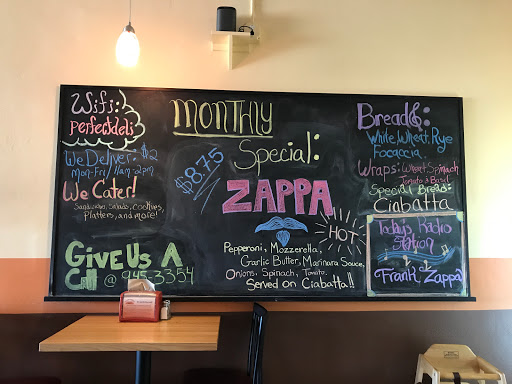 Wifi:
perfectdeli
We Deliver: $2
Mon-Fri/11am-2pm
We Cater!
Sandwiches, Salads, cookies,
Platters, and more!
Give Us A
Call @ 945.3354
Monthly
Special:
$8.75
ZAPPA
HOT
Pepperoni, Mozzerella,
Garlic Butter, Marinara Sauce,
Onions, Spinach, Tomato.
Served on Ciabatta!!
Breads:
White, Wheat, Rye
Focaccia
Wraps: Wheat, Spinach
Tomato & Basil
Special Bread:
Ciabatta
Today's Radio
Station
Frank Zappa